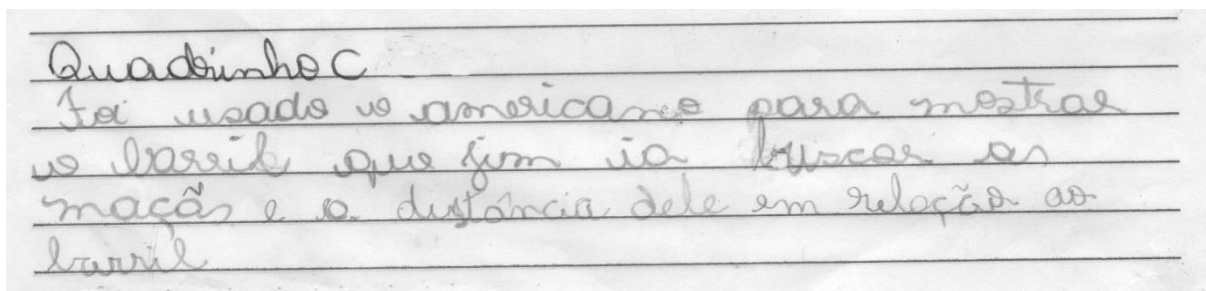 Quadrinho C
Foi usado o americano para mostrar
o barril que Jim ia buscar as
maçãs e a distância dele em relação ao
barril